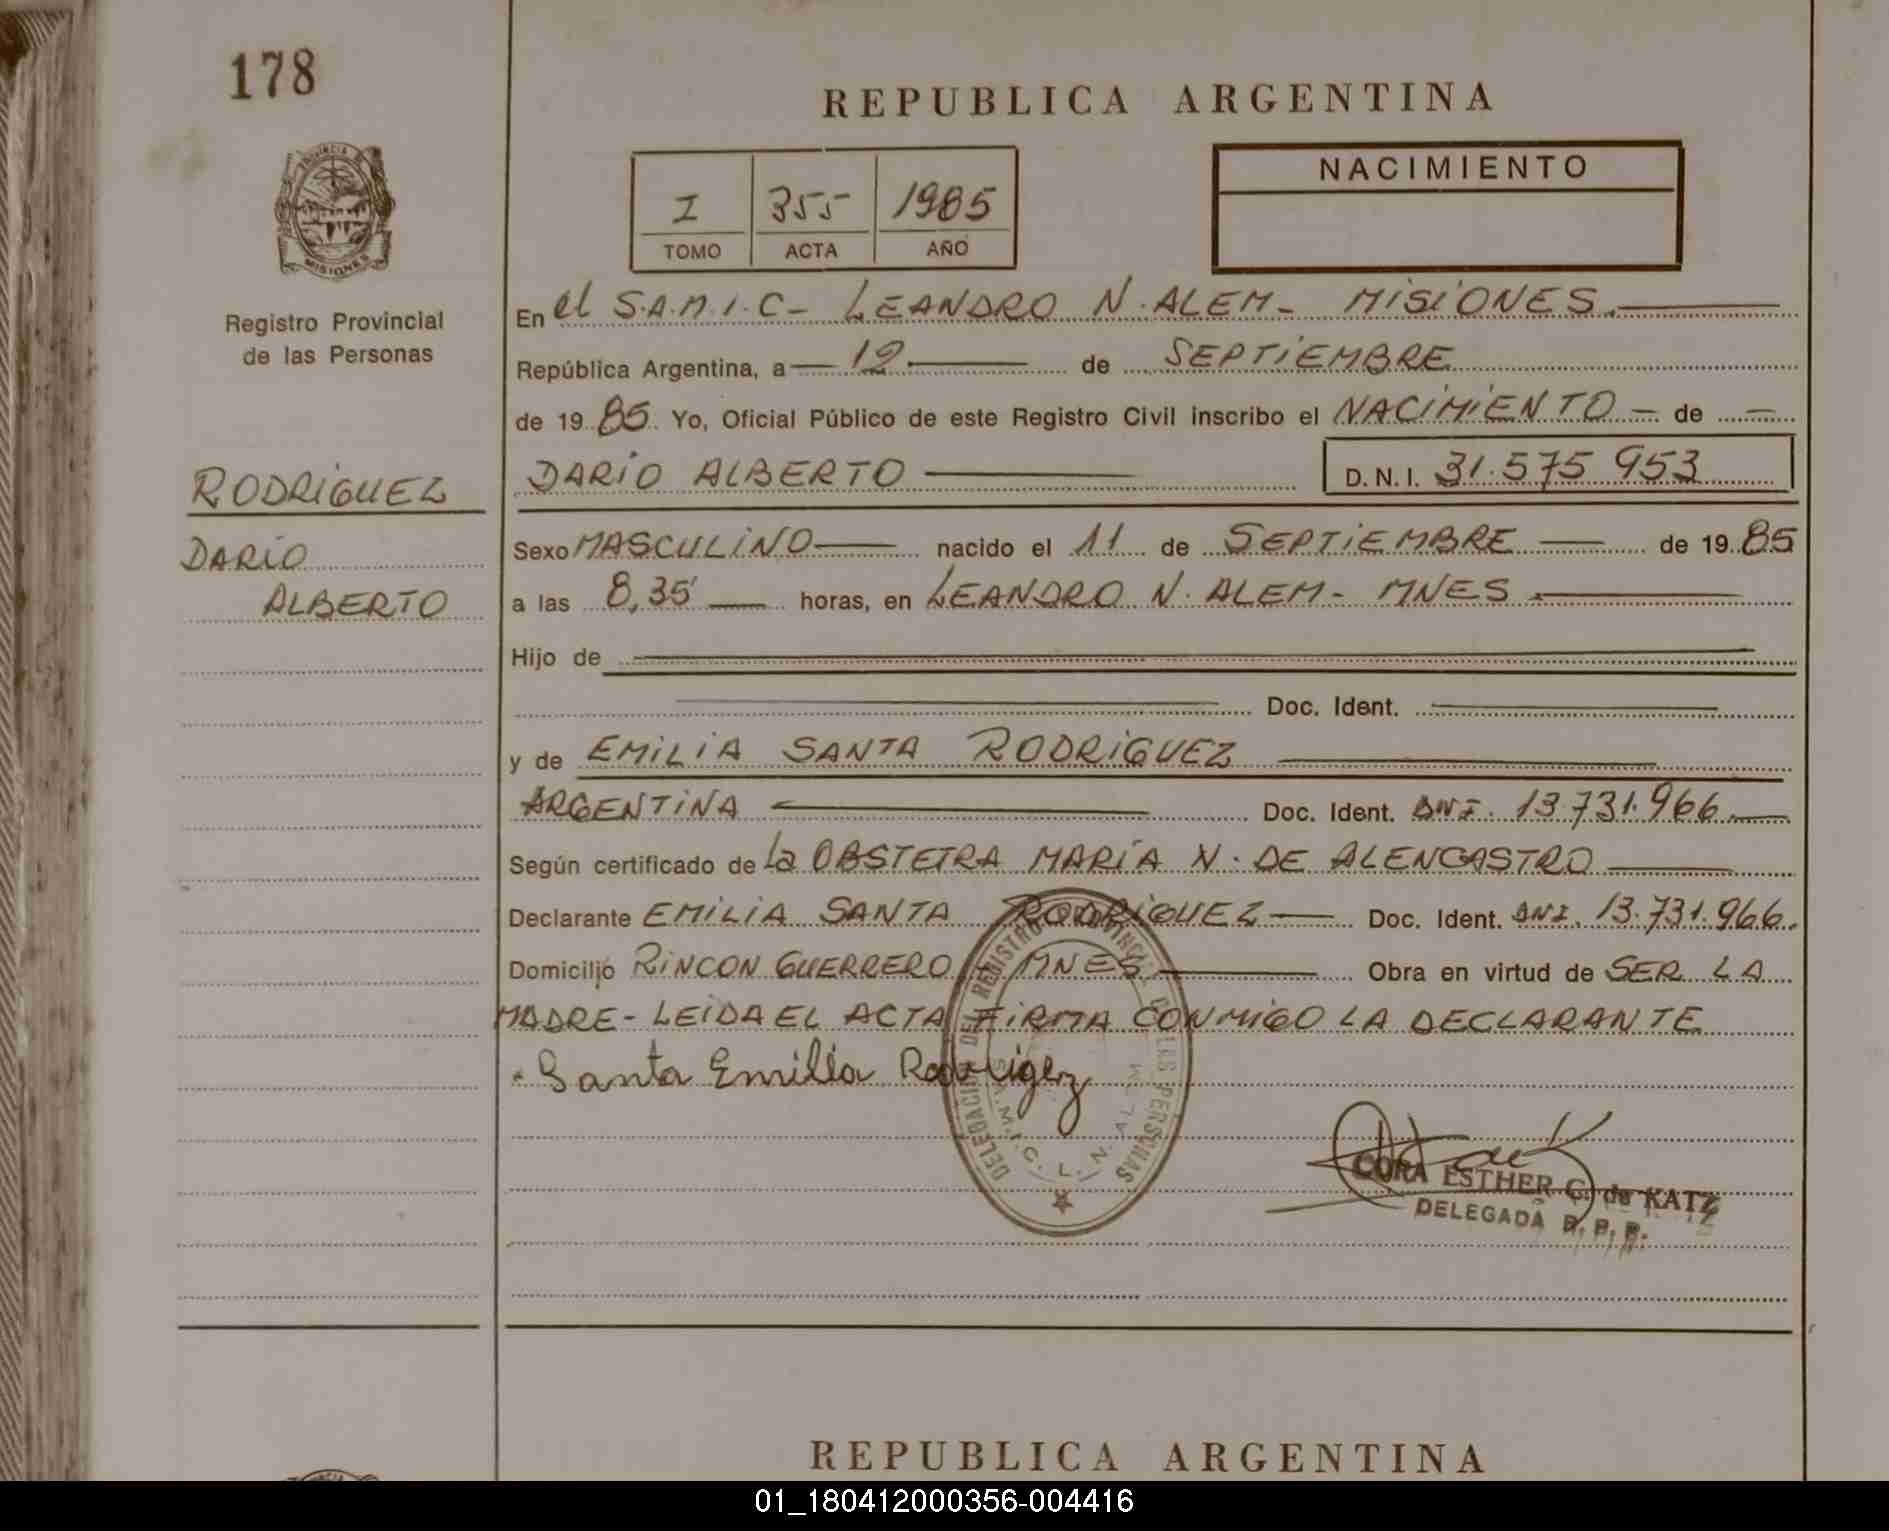 178
REPUBLICA ARGENTINA
PROVINCIA DE
MISIONES
Registro Provincial
de las Personas
I 355 1985
TOMO ACTA AÑO
NACIMIENTO
En el S.A.M.I.C- LEANDRO N. ALEM- MISIONES.
República Argentina, a 12 de SEPTIEMBRE
de 1985. Yo, Oficial Público de este Registro Civil inscribo el NACIMIENTO - de -
RODRIGUEZ
DARIO
ALBERTO
DARIO ALBERTO D.N.I. 31.575 953
Sexo MASCULINO nacido el 11 de SEPTIEMBRE de 1985
a las 8,35 horas, en LEANDRO N. ALEM- MNES.
Hijo de
Doc. Ident.
y de EMILIA SANTA RODRIGUEZ
ARGENTINA Doc. Ident. DNI. 13.731.966
Según certificado de la OBSTETRA MARÍA N. DE ALENCASTRO
Declarante EMILIA SANTA RODRIGUEZ Doc. Ident. DNI. 13.731.966.
Domicilio RINCON GUERRERO - MNES Obra en virtud de SER LA
MADRE- LEIDA EL ACTA FIRMA CONMIGO LA DECLARANTE
Santa Emilia Rodrigez
DELEGACION DEL REGISTRO PROVINCIAL DE LAS PERSONAS
S.A.M.I.C. L. N. ALEM
CORA ESTHER C. de KATZ
DELEGADA R. P. P.
REPUBLICA ARGENTINA
01_180412000356-004416